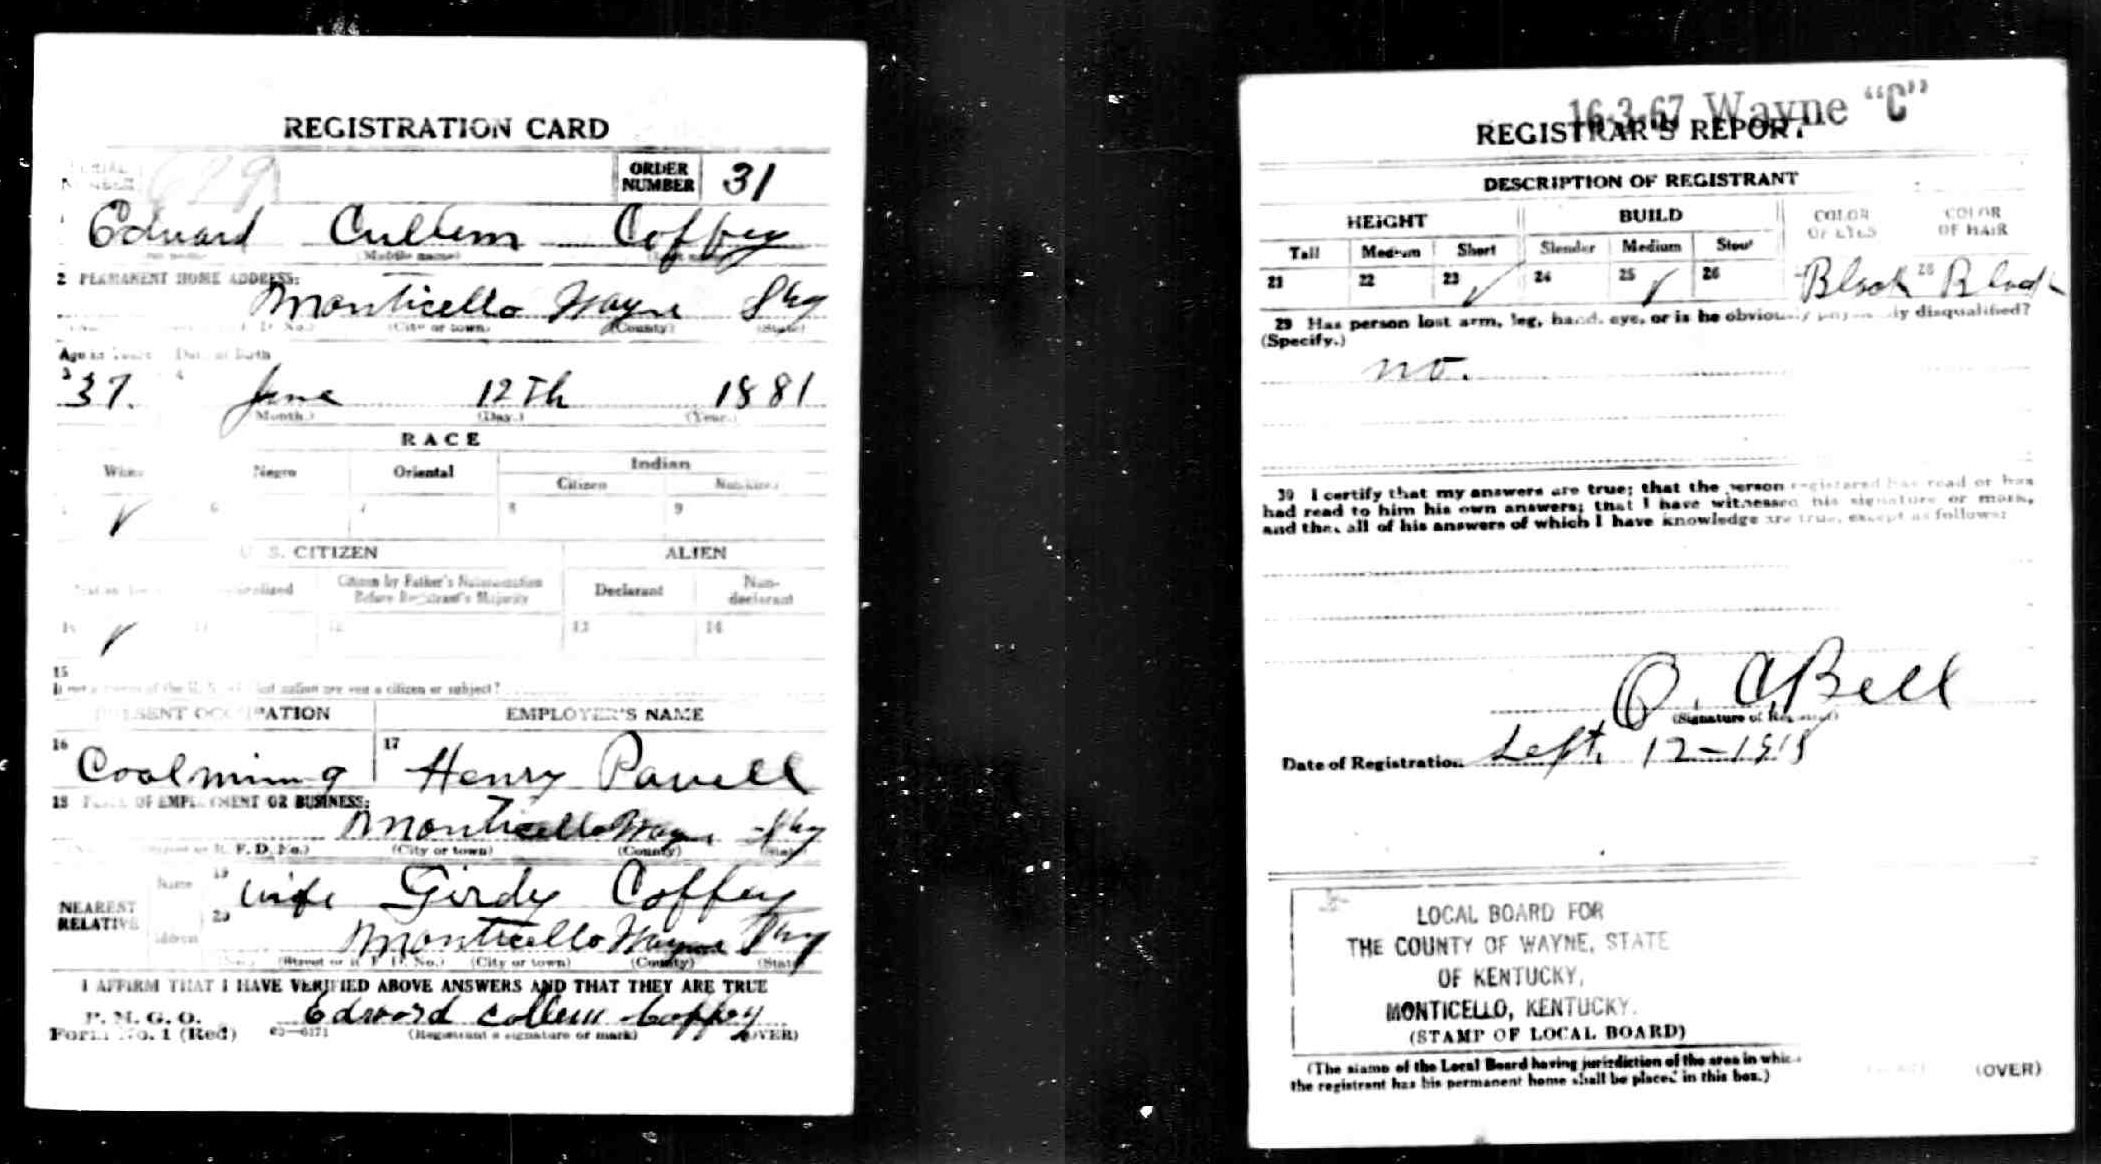 REGISTRATION CARD
ORDER NUMBER 31
Edward Cullem Coffey
(Middle name)
2 PERMANENT HOME ADDRESS:
Monticello Wayne Ky
(City or town) (County) (State)
Age in Years Date of Birth
3 37. 4 June 12Th 1881
(Month.) (Day.) (Year.)
RACE
White Negro Oriental Indian
Citizen
✓ 6 7 8 9
U. S. CITIZEN ALIEN
Citizen by Father's Naturalization Before Registrant's Majority Declarant Non-declarant
10 ✓ 12 13 14
15
PRESENT OCCUPATION EMPLOYER'S NAME
16 Coalmining 17 Henry Powell
18 PLACE OF EMPLOYMENT OR BUSINESS:
Monticello Wayne Ky
R. F. D. No.) (City or town) (County) (State)
NEAREST RELATIVE
Name 19 wife Girdy Coffey
Address 20 Monticello Wayne Ky
(Street or R. F. D. No.) (City or town) (County) (State)
I AFFIRM THAT I HAVE VERIFIED ABOVE ANSWERS AND THAT THEY ARE TRUE
P. M. G. O.
Form No. 1 (Red) Edward Collem Coffey
(Registrant's signature or mark) (OVER)
16-3-67 Wayne "C"
REGISTRAR'S REPORT
DESCRIPTION OF REGISTRANT
HEIGHT BUILD COLOR OF EYES COLOR OF HAIR
Tall Medium Short Slender Medium Stout
21 22 23 ✓ 24 25 ✓ 26 Black 28 Black
29 Has person lost arm, leg, hand, eye, or is he obviously physically disqualified?
(Specify.)
no.
30 I certify that my answers are true; that the person registered has read or has
had read to him his own answers; that I have witnessed his signature or mark,
and that all of his answers of which I have knowledge are true, except as follows:
Bell
(Signature of Registrar)
Date of Registration Sept. 12-1918
LOCAL BOARD FOR
THE COUNTY OF WAYNE, STATE
OF KENTUCKY,
MONTICELLO, KENTUCKY.
(STAMP OF LOCAL BOARD)
(The stamp of the Local Board having jurisdiction of the area in which
the registrant has his permanent home shall be placed in this box.)
(OVER)